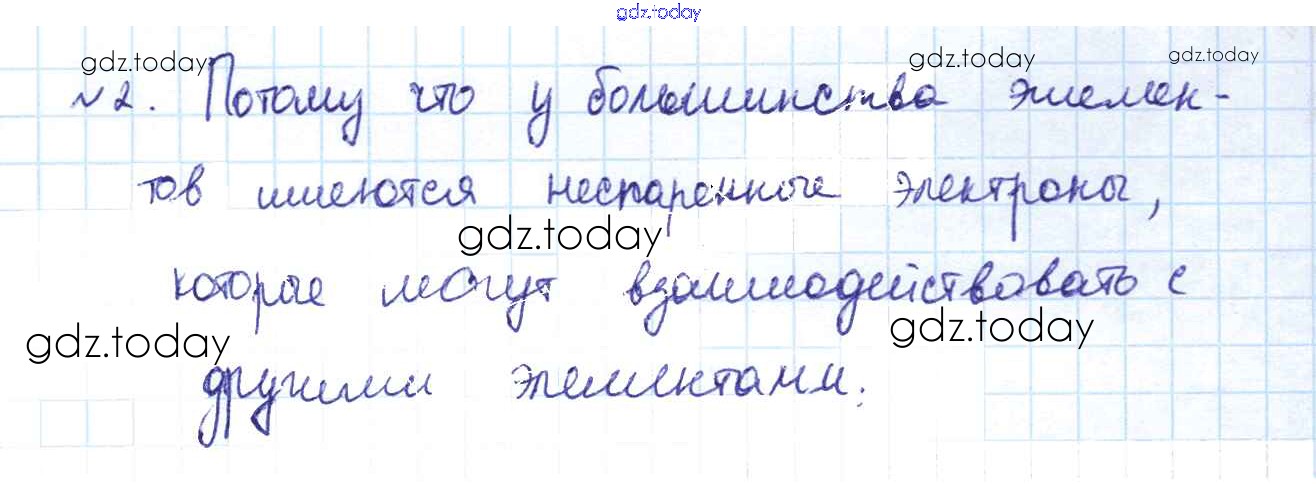 gdz.today
gdz.today gdz.today gdz.today
№2. Потому что у большинства элемен-
тов имеются неспаренные электроны,
gdz.today
которые могут взаимодействовать с
gdz.today gdz.today
другими элементами.